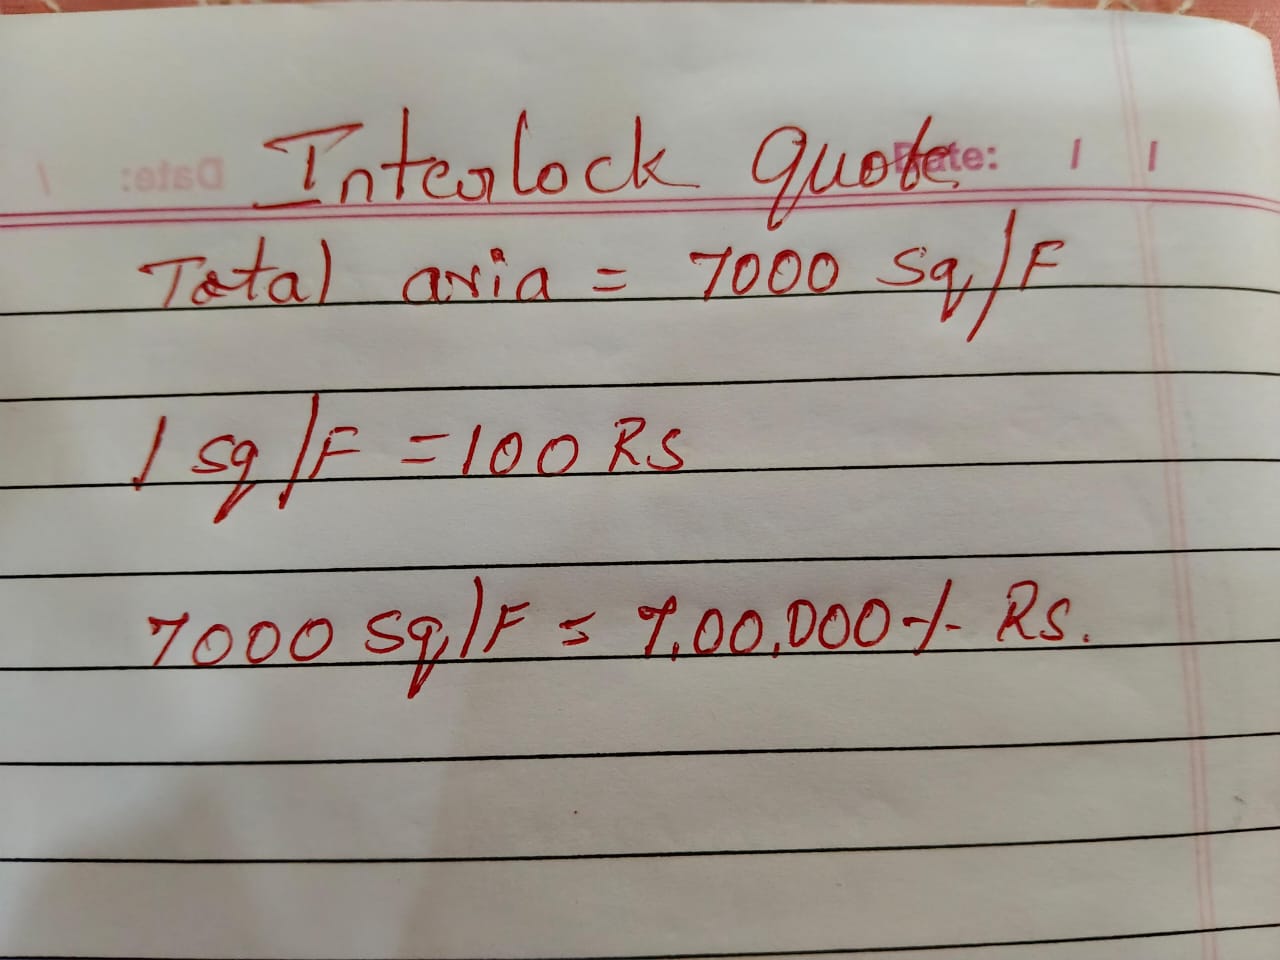 Date: / /
Interlock quote
Total aria = 7000 Sq/F
1 sq/F = 100 RS
7000 Sq/F = 7,00,000-/- Rs.